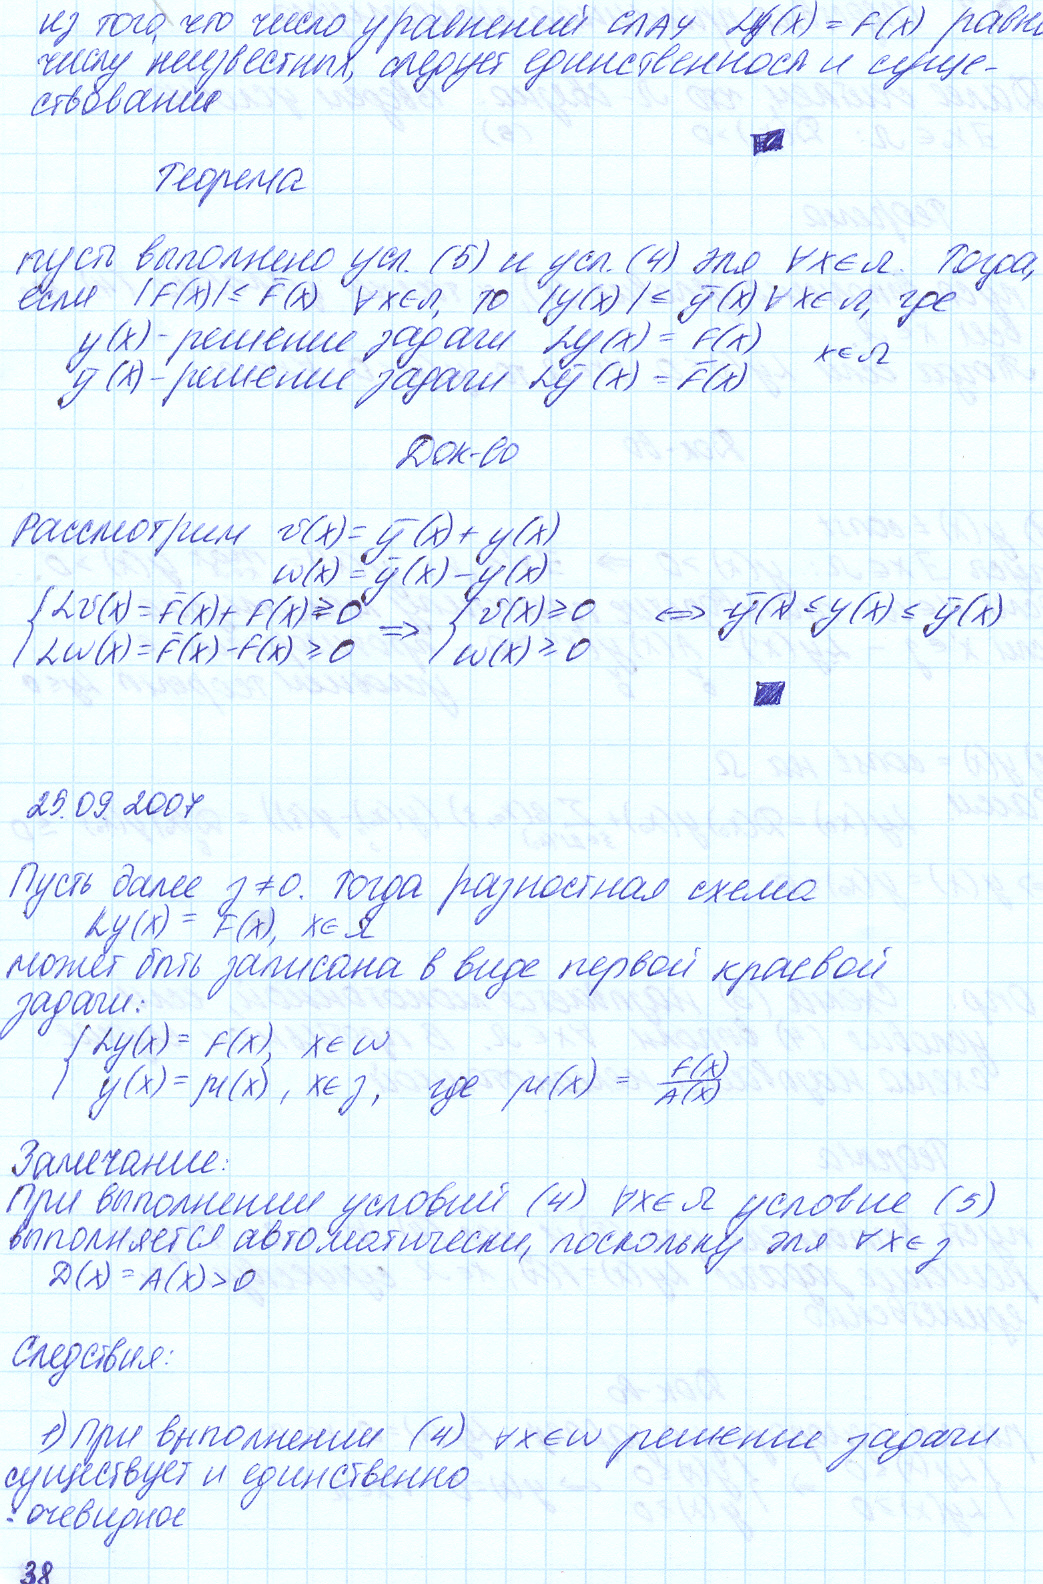 из того, что число уравнений СЛАУ Ly(x) = F(x) равно
числу неизвестных, следует единственность и суще-
ствование
Теорема
пусть выполнено усл. (5) и усл. (4) для ∀x∈Ω. Тогда,
если |F(x)| ≤ F̄(x) ∀x∈Ω, то |y(x)| ≤ ȳ(x) ∀x∈Ω, где
y(x) - решение задачи Ly(x) = F(x)
x∈Ω
ȳ(x) - решение задачи Lȳ(x) = F̄(x)
Док-во
Рассмотрим v(x) = ȳ(x) + y(x)
w(x) = ȳ(x) - y(x)
{ Lv(x) = F̄(x) + F(x) ≥ 0 ⇒ { v(x) ≥ 0 ⇔ -ȳ(x) ≤ y(x) ≤ ȳ(x)
Lw(x) = F̄(x) - F(x) ≥ 0 w(x) ≥ 0
25.09.2007
Пусть далее γ ≠ 0. Тогда разностная схема
Ly(x) = F(x), x∈Ω
может быть записана в виде первой краевой
задачи:
{ Ly(x) = F(x), x∈ω
y(x) = μ(x), x∈γ, где μ(x) = F(x)/A(x)
Замечание:
При выполнении условий (4) ∀x∈Ω условие (5)
выполняется автоматически, поскольку для ∀x∈γ
D(x) = A(x) > 0
Следствия:
1) При выполнении (4) ∀x∈ω решение задачи
существует и единственно
: очевидное
38